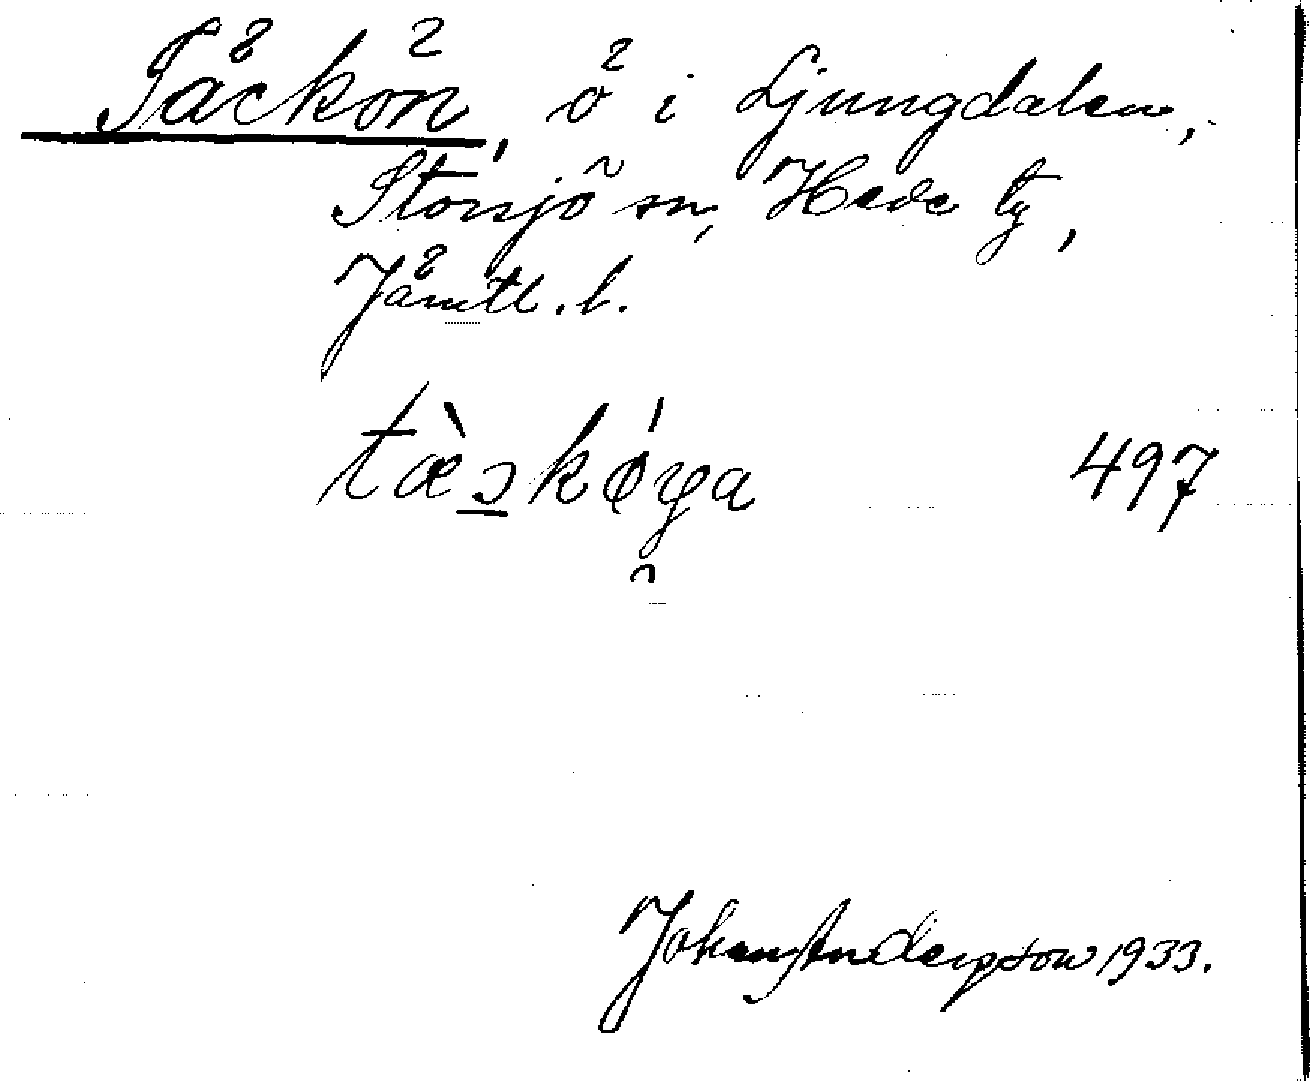 Täckön, ö i Ljungdalen,
Storsjö sn, Hede tg,
Jämtl. l.
tæ̀ɔ̲kǿya 497
Johan Anderson 1933.